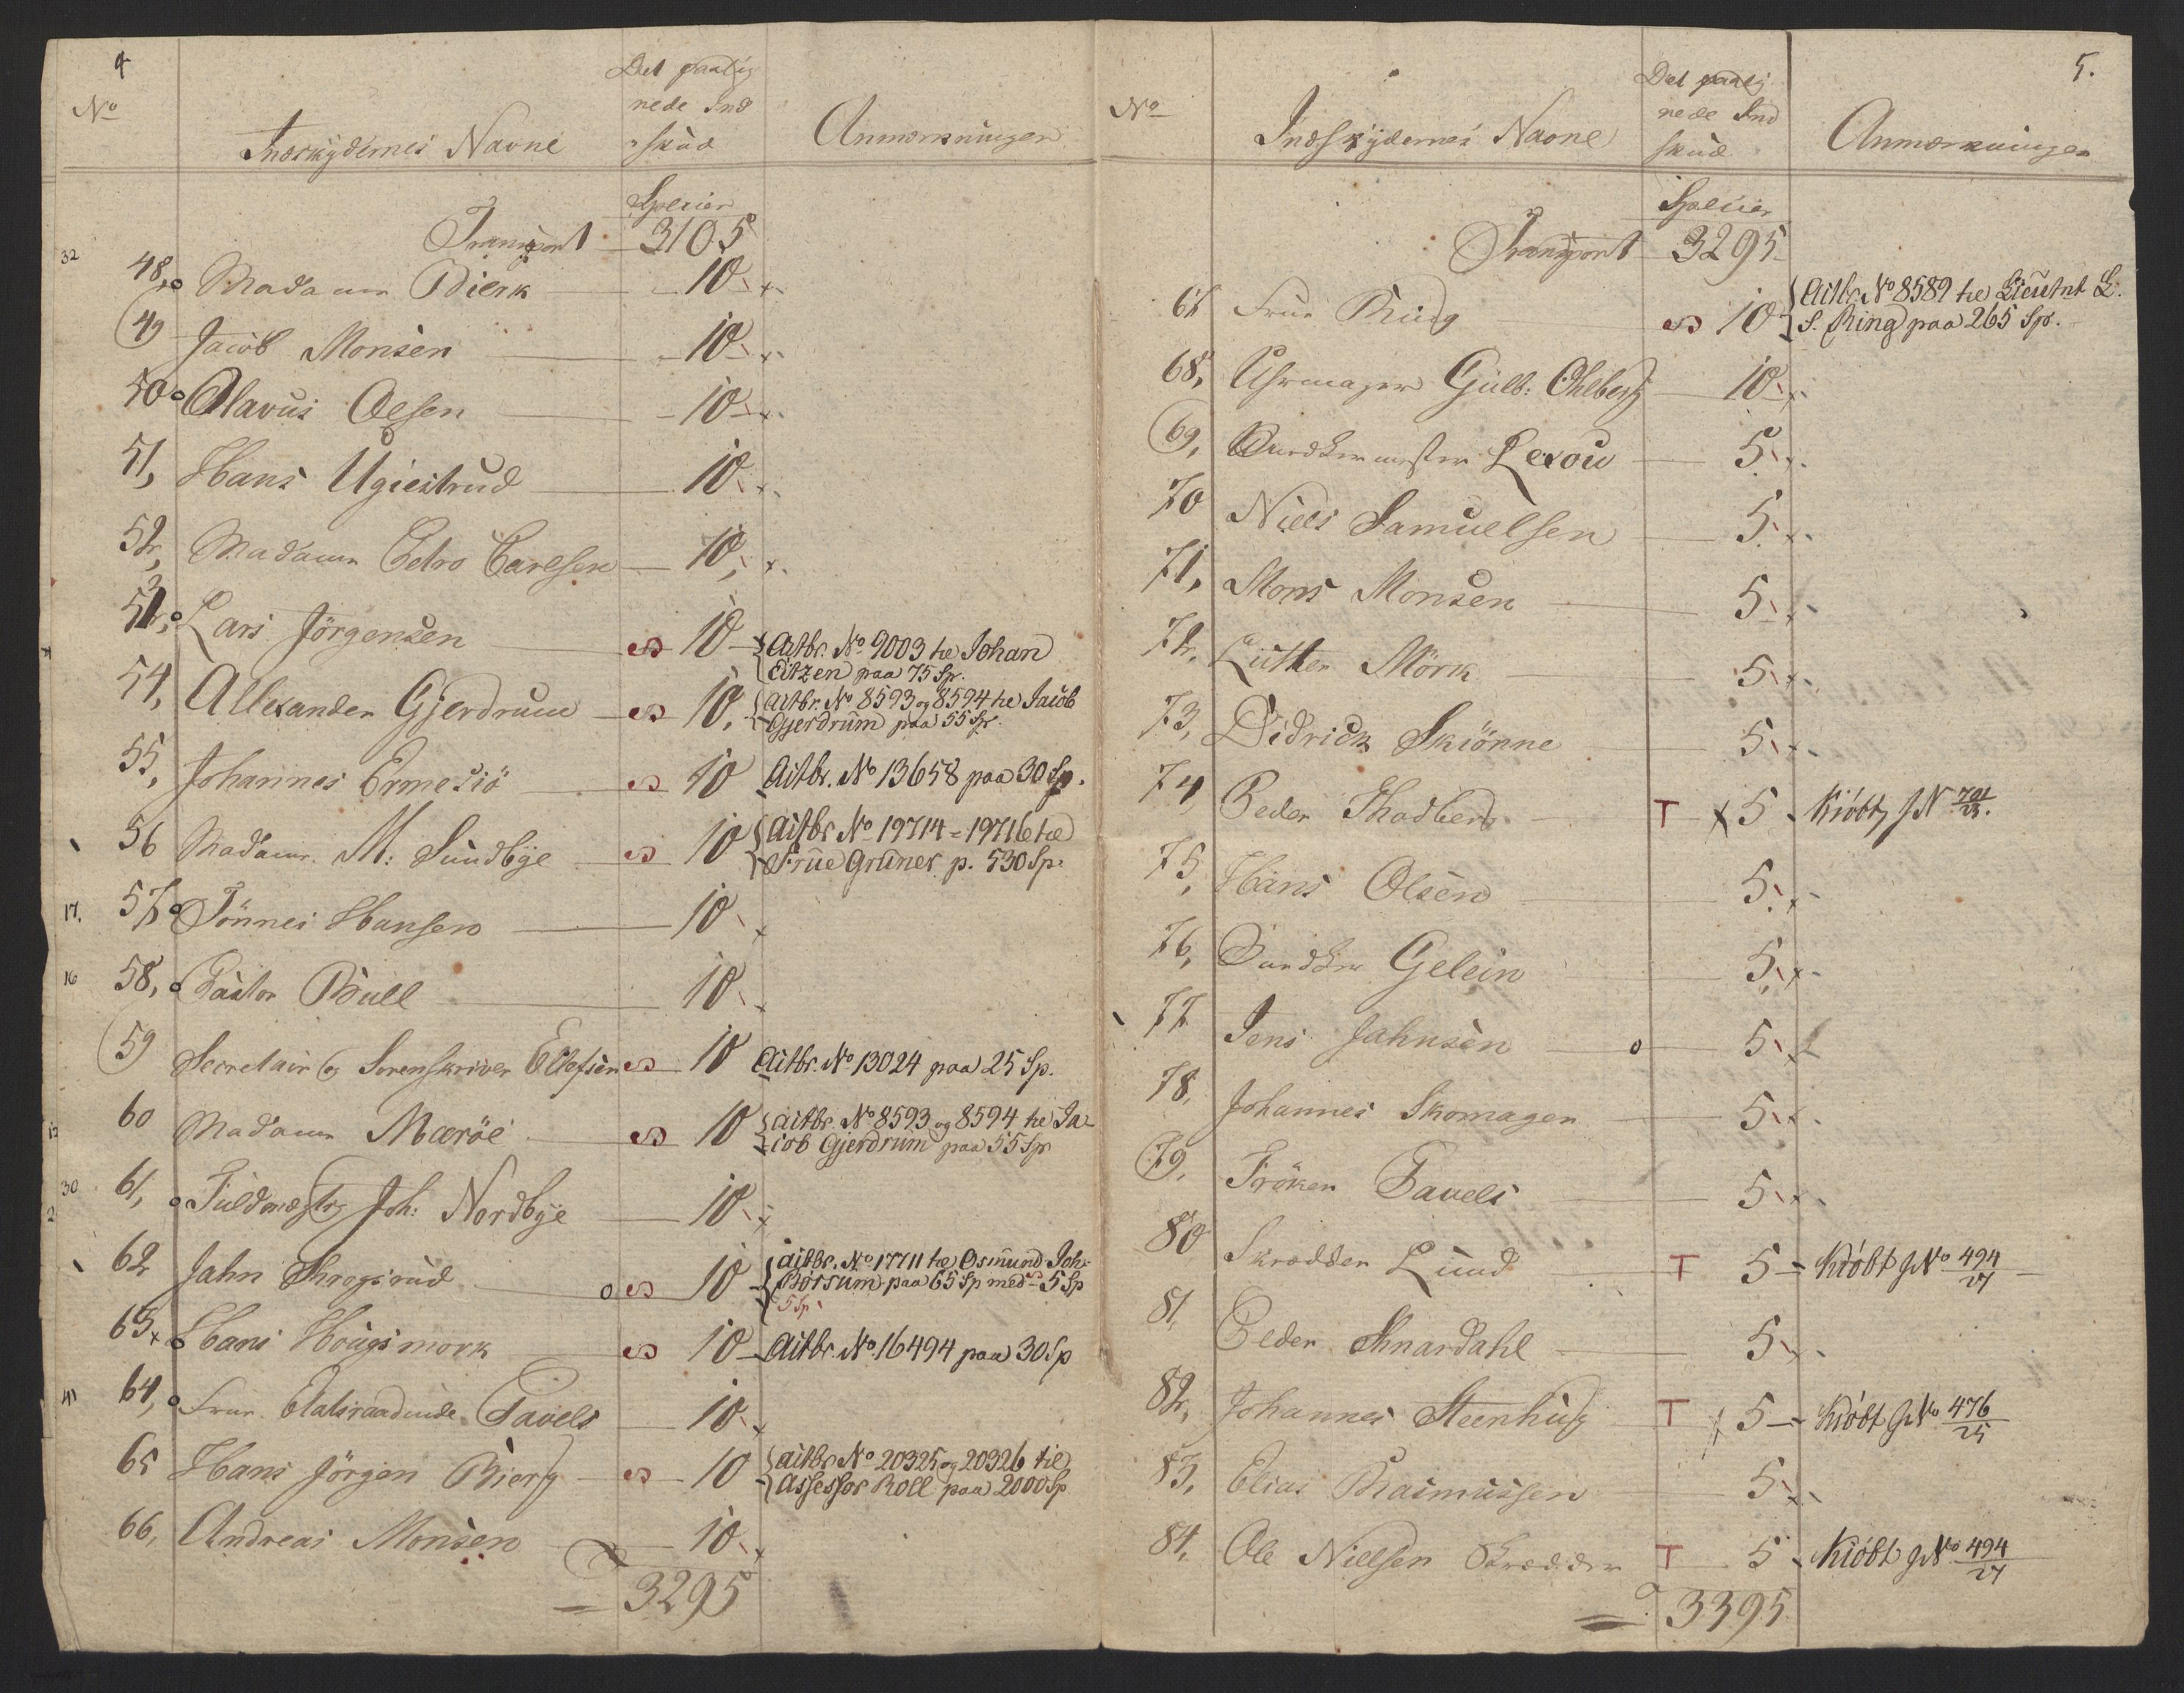 4
No
Indskydernes Navne
Det paalig
nede Ind
skud
Anmærkninger
Species
Transport 3105
32
48, Madame Bierk 10
49 Jacob Monsen 10
50 Olavus Olsen 10
51, Hans Ugiestrud 10
52, Madame Pedro Carlsen 10
53, Lars Jörgensen 10 Actbr. No 9003 til Johan
Eitzen paa 75 Sp.
54, Allexander Gjerdrum 10 Actbr. No 8593 og 8594 til Jacob
Gjerdrum paa 55 Sp.
55, Johannes Ermesiö 10 Actbr. No 13658 paa 30 Sp.
56 Madame M: Sundbye 10 Actbr No 19714 = 19716 til
Frue Grüner p. 530 Sp.
17. 57 Tönnes Hansen 10
16 58, Pastor Bull 10
59 Secretair og Sorenskriver Ellefsen 10 Actbr. No 13024 paa 25 Sp.
60 Madame Mæröe 10 Actbr. No 8593 og 8594 til Ja-
cob Gjerdrum paa 55 Sp
30 61, Fuldmægtig Joh: Nordbye 10
62 Jahn Skrogsrud 10 Actbr. No 17711 til Osmund Joh:
Börsum paa 65 Sp med 5 Sp
5 Sp
63 Hans Hougsmork 10 Actbr. No 16494 paa 30 Sp
64, Frue Etatsraadinde Pavels 10
65 Hans Jörgen Bierg 10 Actbr No 20325 og 20326 til
Assessor Roll paa 2000 Sp
66, Andreas Monsen 10
3295
5.
No
Indskydernes Navne
Det paalig
nede Ind
skud
Anmærkninger
Species
Transport 3295
67 Frue Ring 10 Actbr. No 8589 til Lieutnt L.
S. Ring paa 265 Sp.
68, Uhrmager Gulb: Ohlberg 10
69, Lexow 5
70 Niels Samuelsen 5
71, Mons Monsen 5
72, Luther Mörk 5
73, Didrick Skiönne 5
74 Peder Stadberg T 5 Kiöbt J N 701/23.
75, Hans Olsen 5
76, Gelein 5
77 Jens Jahnsen 5
78, Johannes Skomager 5
79. Fröken Pavels 5
80 Skrædder Lund T 5 Kiöbt J No 494/27
81, Peder Snardahl 5
82, Johannes Steenhus T 5 Kiöbt J No 476/25
83, Elias Rasmussen 5
84, Ole Nielsen Skrædder T 5 Kiöbt J No 494/27
3395